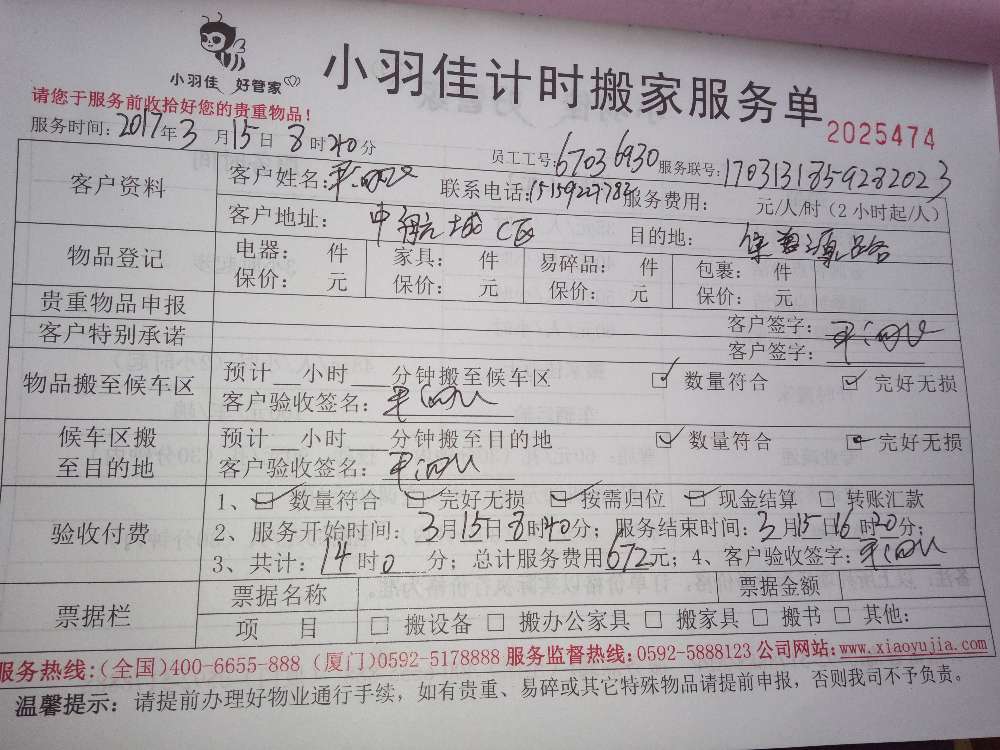 小羽佳 好管家
小羽佳计时搬家服务单
请您于服务前收拾好您的贵重物品!
2025474
服务时间: 2017年3月15日8时40分
员工工号: 67036930 服务联号: 1703131859282023
客户资料 客户姓名: 联系电话: 15159227783 服务费用: 元/人/时(2小时起/人)
客户地址: 中航城C区 目的地:
物品登记 电器: 件 家具: 件 易碎品: 件 包裹: 件
保价: 元 保价: 元 保价: 元 保价: 元
贵重物品申报 客户签字:
客户特别承诺 客户签字:
物品搬至候车区 预计 小时 分钟搬至候车区 ☑ 数量符合 ☑ 完好无损
客户验收签名:
候车区搬至目的地 预计 小时 分钟搬至目的地 ☑ 数量符合 ☑ 完好无损
客户验收签名:
验收付费 1、☑ 数量符合 ☑ 完好无损 ☑ 按需归位 ☑ 现金结算 □ 转账汇款
2、服务开始时间: 3月15日8时40分; 服务结束时间: 3月15日16时20分;
3、共计: 14时0分; 总计服务费用672元; 4、客户验收签字:
票据栏 票据名称 票据金额
项 目 □ 搬设备 □ 搬办公家具 □ 搬家具 □ 搬书 □ 其他:
服务热线:(全国)400-6655-888 (厦门)0592-5178888 服务监督热线:0592-5888123 公司网站:www.xiaoyujia.com
温馨提示: 请提前办理好物业通行手续，如有贵重、易碎或其它特殊物品请提前申报，否则我司不予负责。